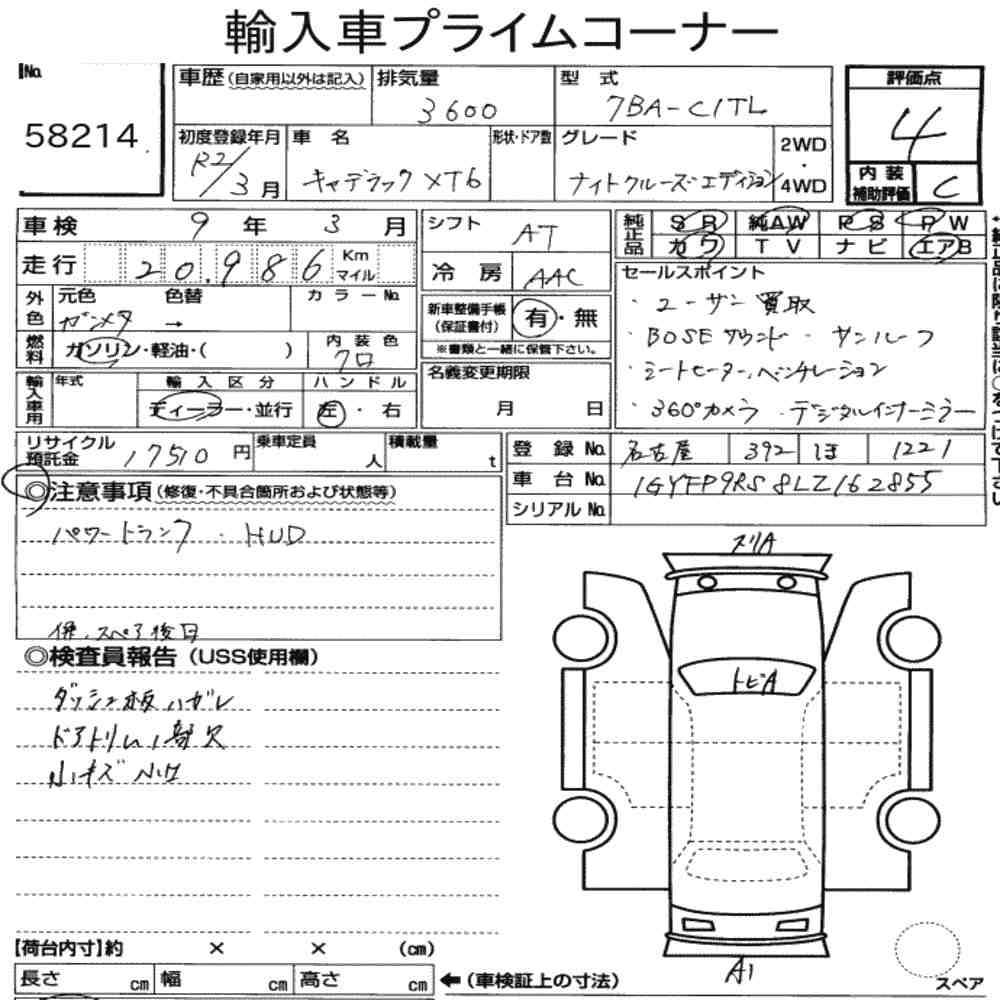 輸入車プライムコーナー
No.
58214
車歴 (自家用以外は記入)
排気量
3600
型 式
7BA-C1TL
評価点
4
初度登録年月
R2/3月
車 名
キャデラック XT6
形状・ドア数
グレード
ナイトクルーズエディション
2WD
・
4WD
内 装
補助評価
C
車検 9 年 3 月
シフト
AT
純正品
SR 純AW PS PW
カワ TV ナビ エアB
走行 20,986 Km マイル
冷 房 AAC
セールスポイント
・ユーザー買取
・BOSEサウンド ・サンルーフ
・シートヒーター,ベンチレーション
・360°カメラ ・デジタルインナーミラー
外色
元色
ガンメタ
→
色替
カラーNo.
新車整備手帳
(保証書付)
有・無
※書類と一緒に保管下さい。
燃料
ガソリン・軽油・( )
内 装 色
クロ
輸入車用
年式
輸 入 区 分
ディーラー・並行
ハ ン ド ル
左 ・ 右
名義変更期限
月 日
リサイクル
預託金
17510 円
乗車定員
人
積載量
t
登 録 No. 名古屋 392 ほ 1221
車 台 No. 1GYFP9RS8LZ162855
シリアル No.
◎注意事項 (修復・不具合箇所および状態等)
パワートランク ・ HUD
スペア後日
◎検査員報告 (USS使用欄)
ダッシュ板ハガレ
ドアトリム一部欠
小キズ 小凹
スリA
トビA
A1
スペア
【荷台内寸】約 × × (cm)
長さ cm 幅 cm 高さ cm
←(車検証上の寸法)